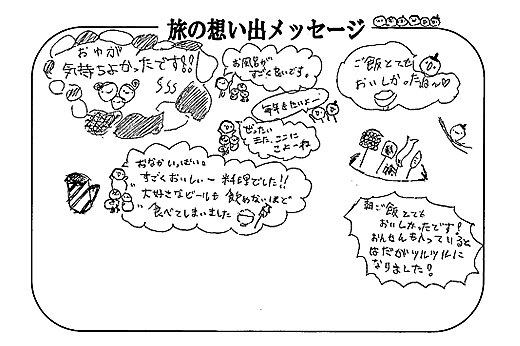 旅の想い出メッセージ
おゆが
気持ちよかったです!!
お風呂が
すごく良いです。
毎年きたいよー
ぜったい
また、ここに
こよーね
ご飯とても
おいしかったねっ♡
おなかいっぱい。
すごくおいしいー料理でした!!
大好きなビールも飲めないほど
食べてしまいました
朝ご飯とても
おいしかったです!
おんせんも入っていると
はだがツルツルに
なりました!